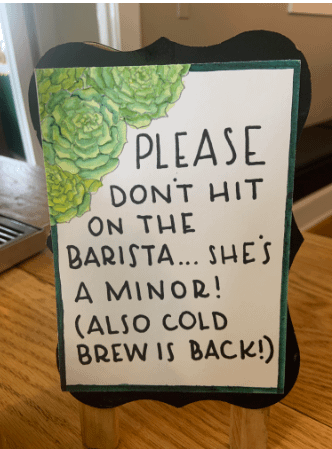 PLEASE
DON'T HIT
ON THE
BARISTA... SHE'S
A MINOR!
(ALSO COLD
BREW IS BACK!)